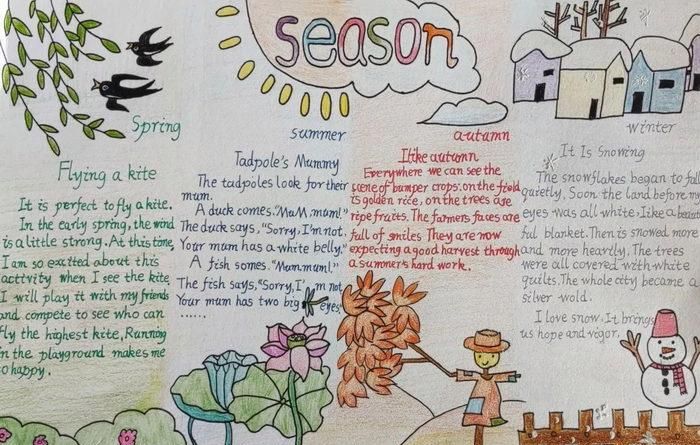 season
Spring
Flying a kite
It is perfect to fly a kite.
In the early spring, the wind
is a little strong. At this time,
I am so excited about this
activity when I see the kite
I will play it with my friends
and compete to see who can
fly the highest kite, Running
in the playground makes me
so happy.
summer
Tadpole's Mummy
The tadpoles look for their
mum.
A duck comes. "Mum, mum!"
The duck says, "Sorry, I'm not.
Your mum has a white belly."
A fish somes. "Mum, mum!,"
The fish says, "Sorry, I'm not
Your mum has two big eyes,
......
autumn
I like autumn
Everywhere we can see the
scene of bumper crops: on the field
is golden rice, on the trees are
ripe fruits. The farmers faces are
full of smiles They are now
expecting a good harvest through
a summer's hard work.
winter
It Is Snowing
The snowflakes began to fall
quietly. Soon the land before my
eyes was all white. Like a beauti
ful blanket. Then is snowed more
and more heartly. The trees
were all covered with white
quilts. The whole city became a
silver wold.
I love snow. It brings
us hope and vigor.